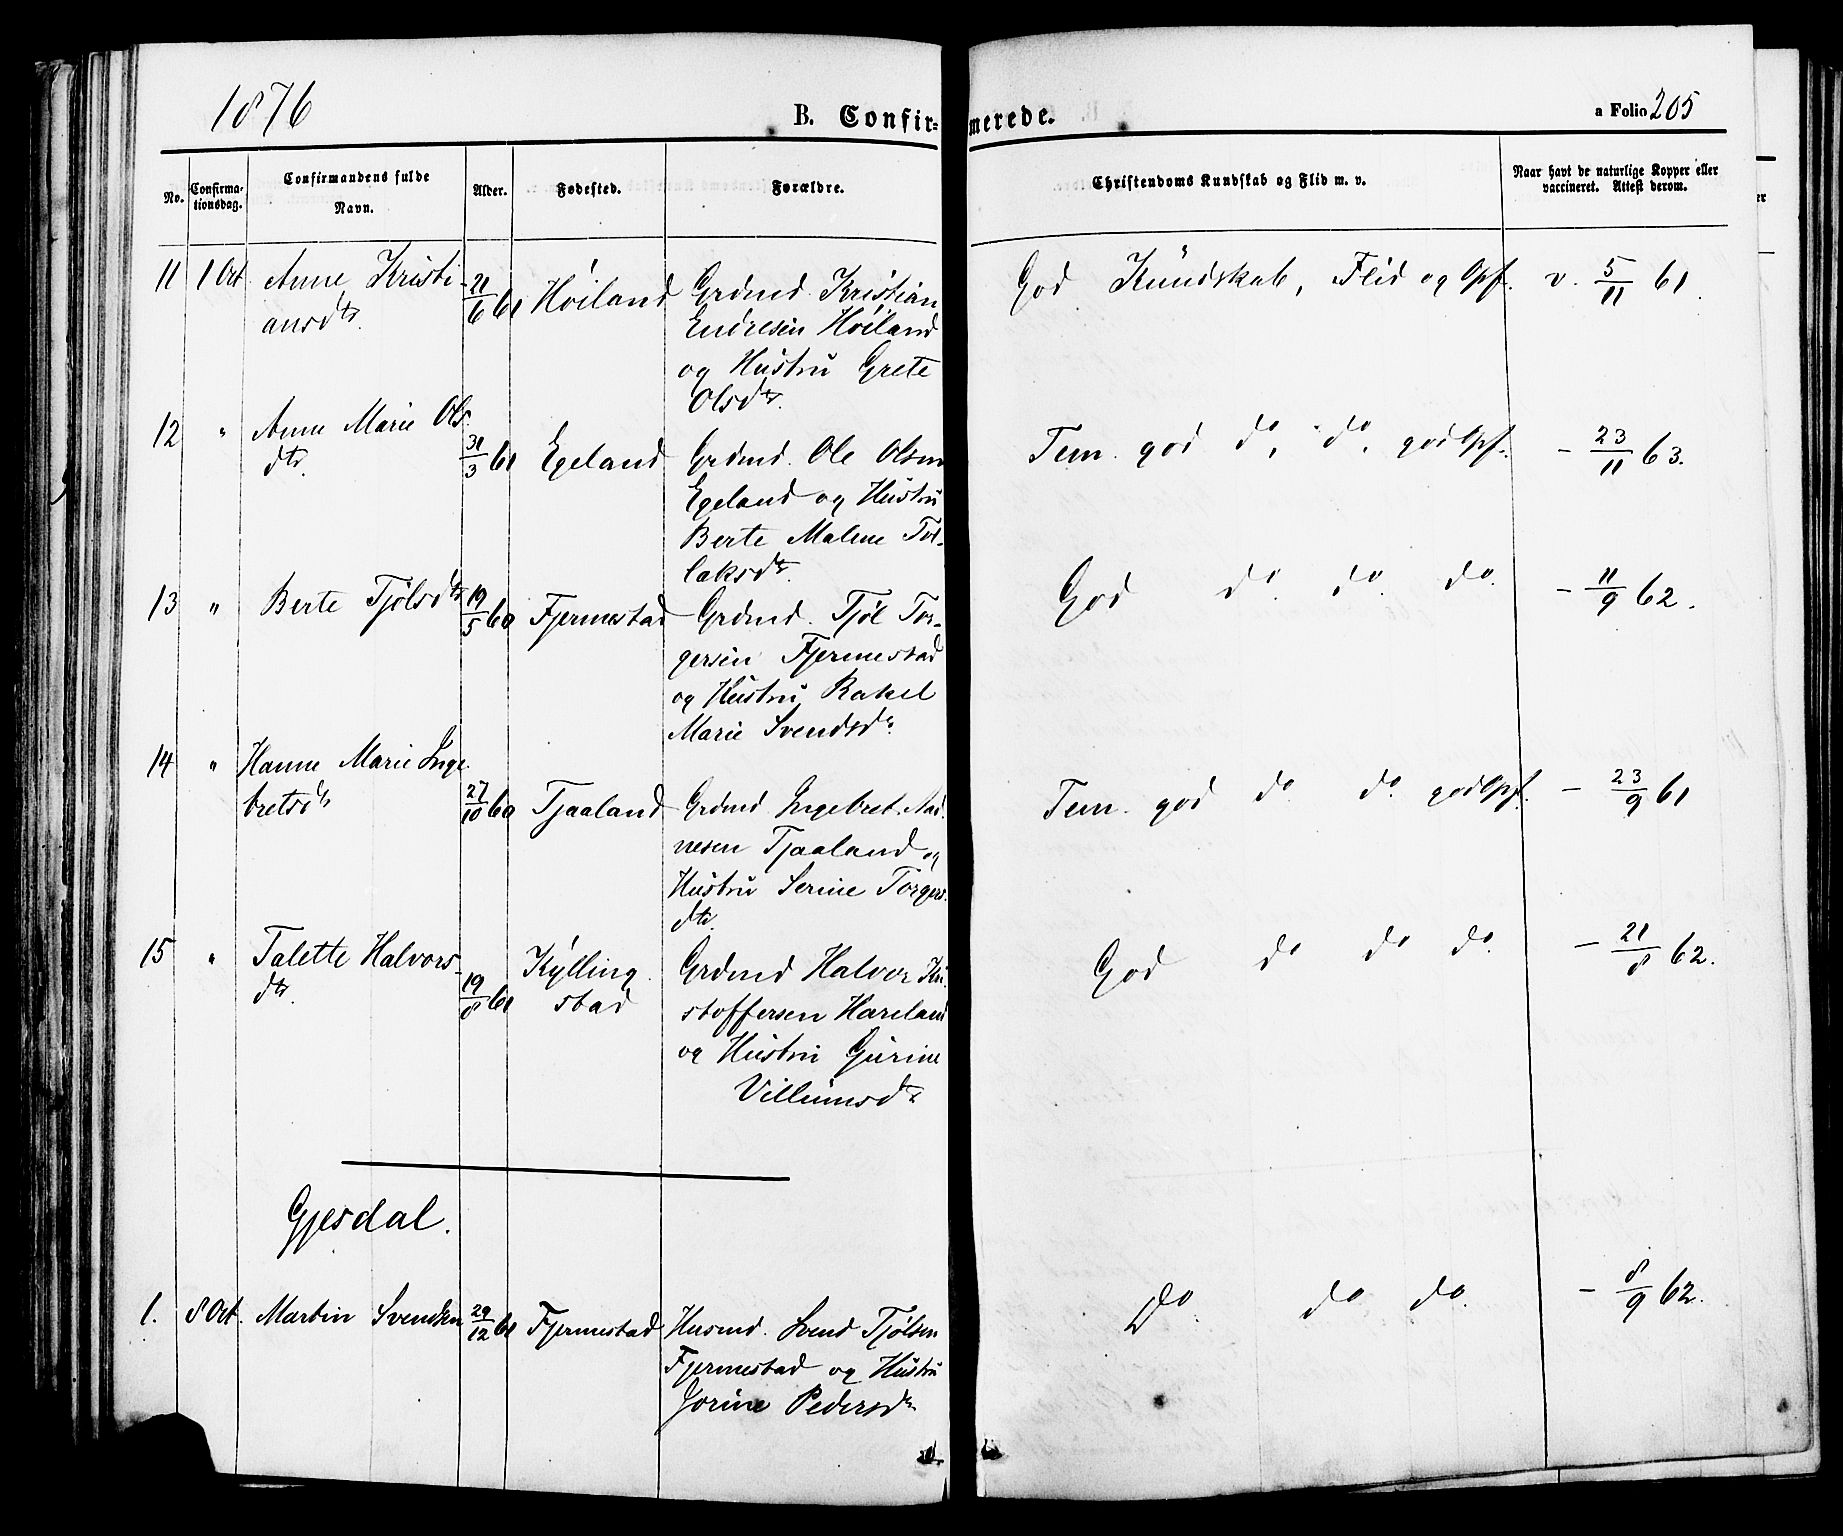 1876
B. Confir= merede.
a Folio 205
No. Confirma-tionsdag. Confirmandens fulde Navn. Alder. Fødested. Forældre. Christendoms Kundskab og Flid m. v. Naar havt de naturlige Kopper eller vaccineret. Attest derom.
11 1 Oct Anne Kristi- 21/6 61 Høiland Grdmd. Kristian God Kundskab, Flid og Opf. v. 5/11 61.
ansdtr. Endresen Høiland
og Hustru Grete
Olsdtr.
12 " Anne Marie Ols- 31/3 61 Egeland Grdmd. Ole Olsen Tem. god do, do, god Opf. - 23/11 63.
dtr. Egeland og Hustru
Berte Malene Tol-
laksdtr.
13 " Berte Tjølsdtr 19/5 60 Fjermestad Grdmd. Tjøl Tor- God do do. do. - 11/9 62.
gersen Fjermestad
og Hustru Rakel
Marie Svendsdr.
14 " Hanne Marie Inge- 27/10 60 Tjaaland Grdmd Ingebret Aad- Tem. god do. do. god Opf. - 23/9 61
bretsdtr nesen Tjaaland og
Hustru Serine Torgers-
dtr.
15 " Talette Halvors- 19/8 61 Kylling- Grdmd Halvor Kri- God do do do. - 21/8 62.
dtr. stad stoffersen Hareland
og Hustru Gurine
Villumsdtr
Gjesdal.
1. 8 Oct. Martin Svendsen 29/12 61 Fjermestad Husmd. Svend Tjølsen Do. do do. - 8/9 62.
Fjermestad og Hustru
Jorine Pedersdtr